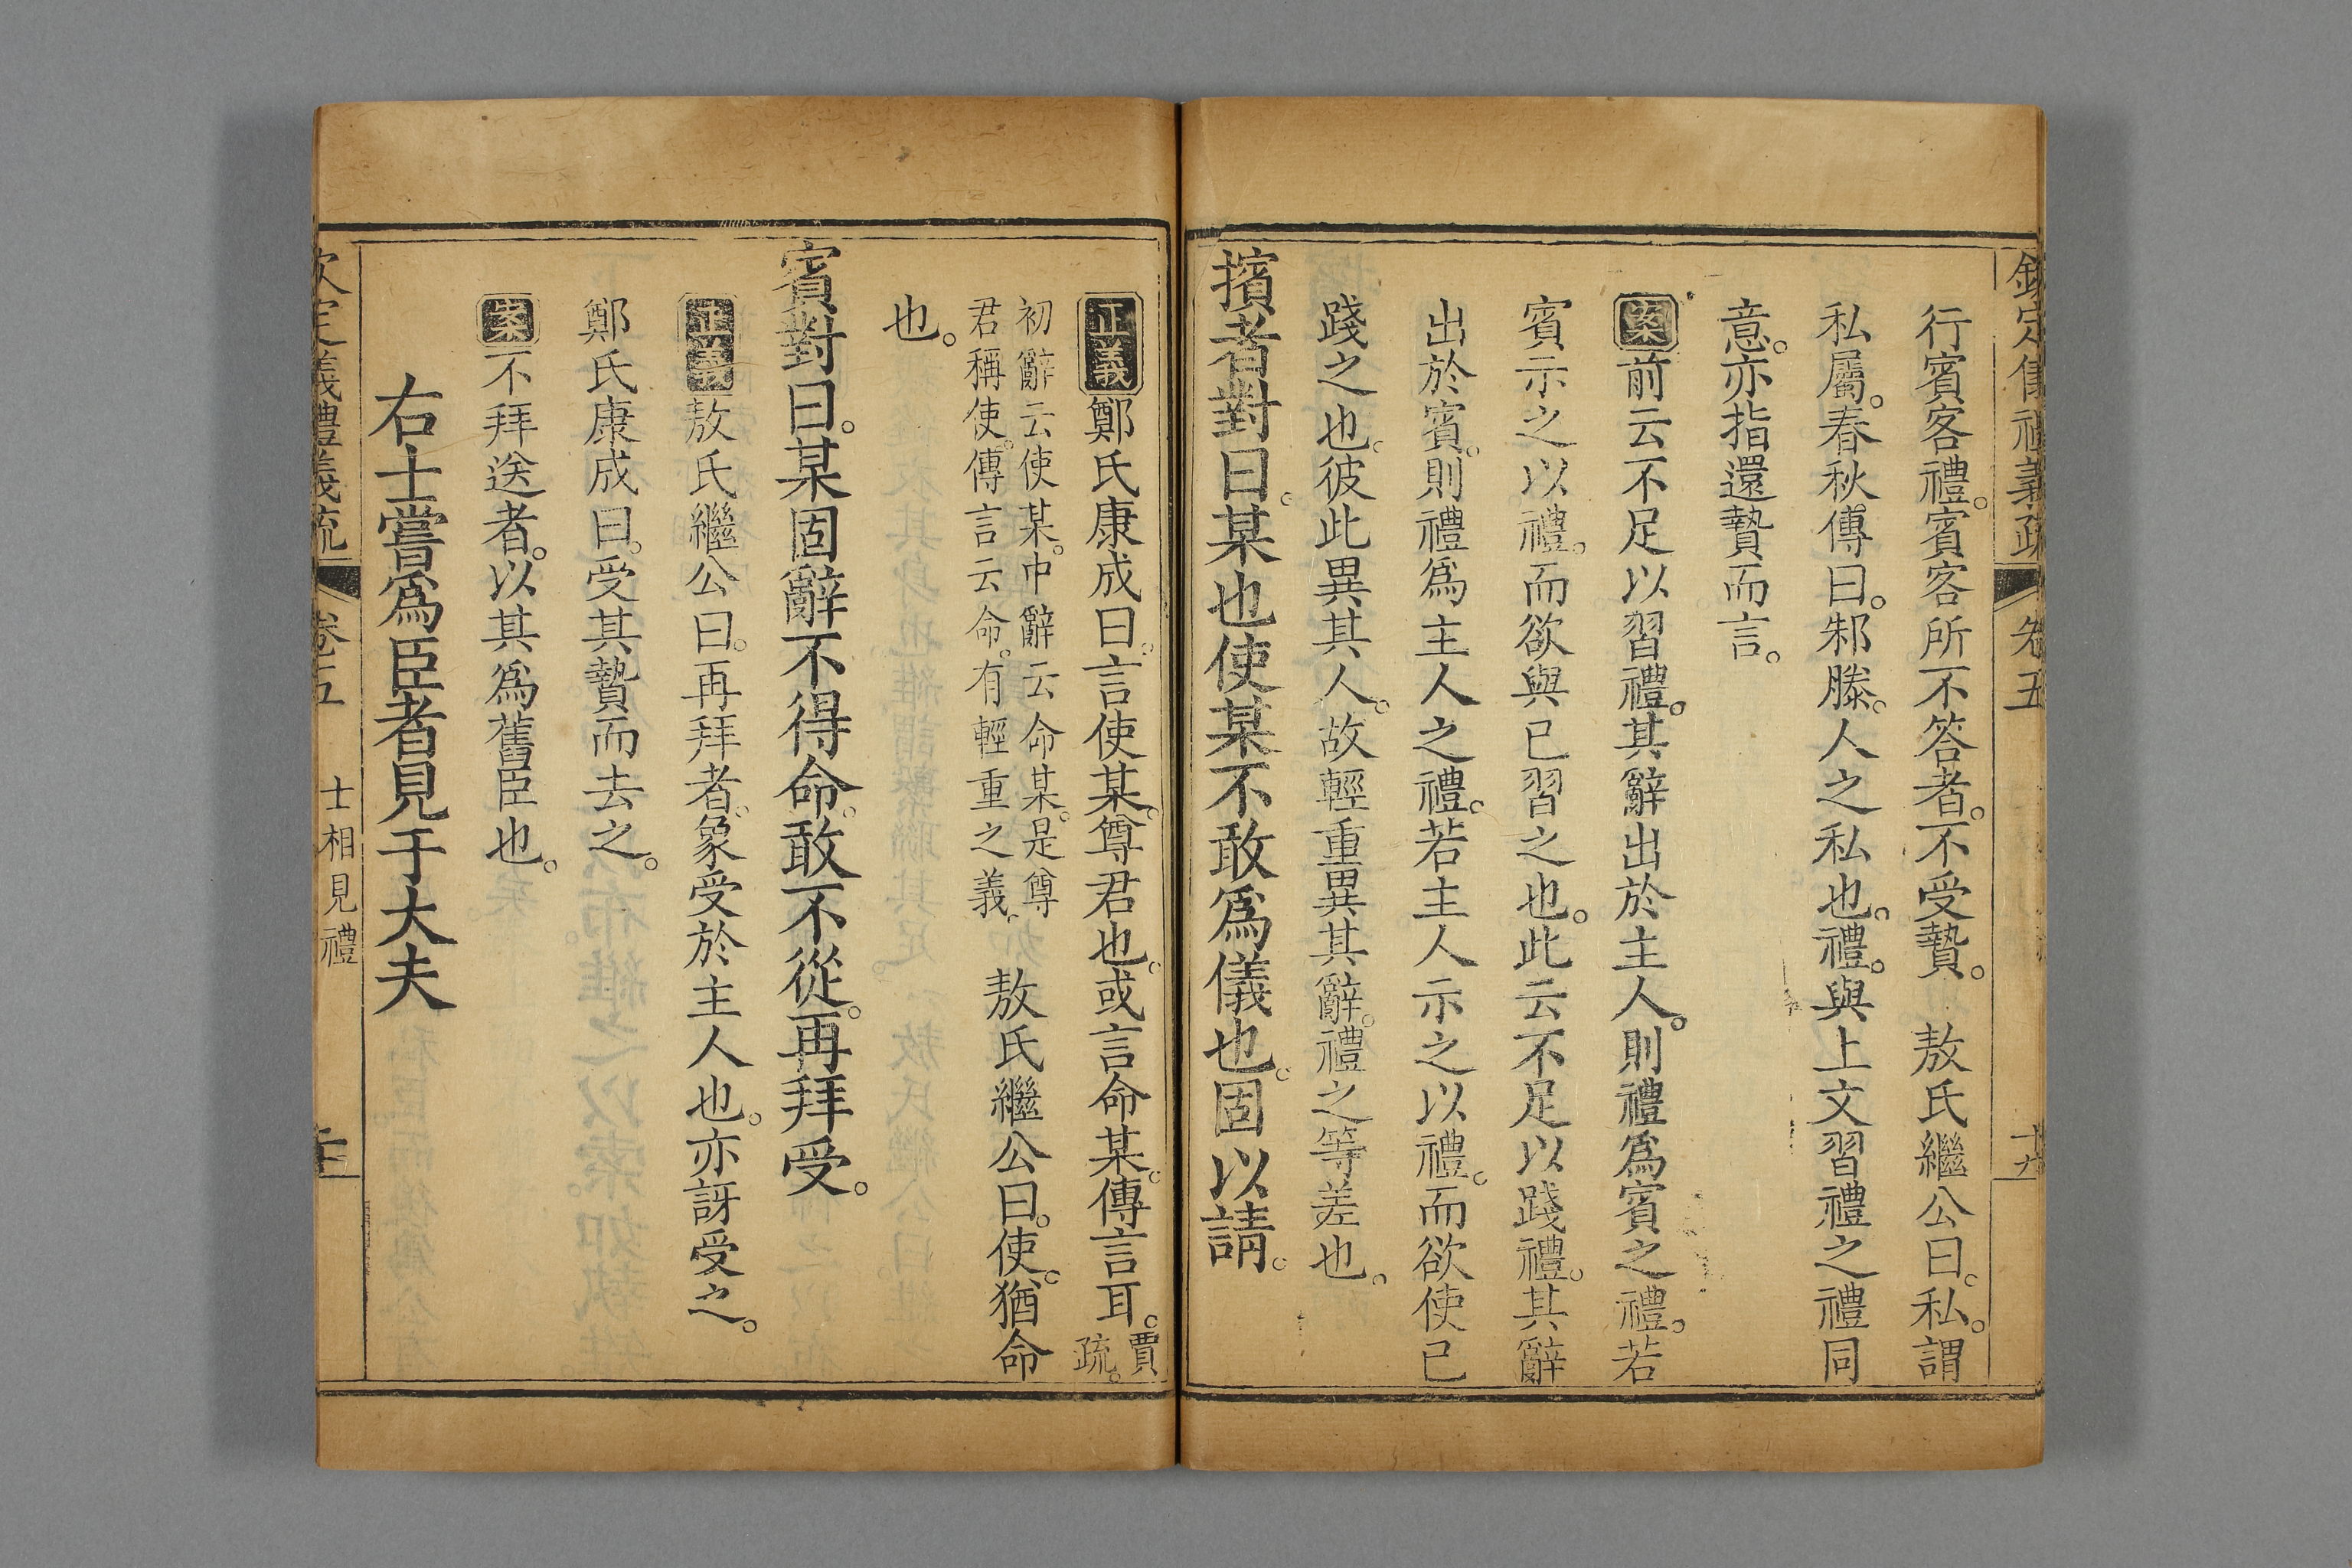 欽定儀禮義疏 卷五
行賓客禮。賓客所不答者。不受贄。 敖氏繼公曰。私。謂
私屬。春秋傳曰。邾滕。人之私也。禮。與上文習禮之禮同
意。亦指還贄而言。
案前云不足以習禮。其辭出於主人。則禮爲賓之禮。若
賓示之以禮。而欲與已習之也。此云不足以踐禮。其辭
出於賓。則禮爲主人之禮。若主人示之以禮。而欲使已
踐之也。彼此異其人。故輕重異其辭。禮之等差也。
擯者對曰。某也使某不敢爲儀也。固以請。
正義鄭氏康成曰。言使某。尊君也。或言命某。傳言耳。賈疏。
初辭云使某。中辭云命某。是尊
君稱使。傳言云命。有輕重之義。 敖氏繼公曰。使。猶命
也。
賓對曰。某固辭不得命。敢不從。再拜受。
正義敖氏繼公曰。再拜者。象受於主人也。亦訝受之。
鄭氏康成曰。受其贄而去之。
案不拜送者。以其爲舊臣也。
右士嘗爲臣者見于大夫
欽定義禮義疏 卷五 士相見禮